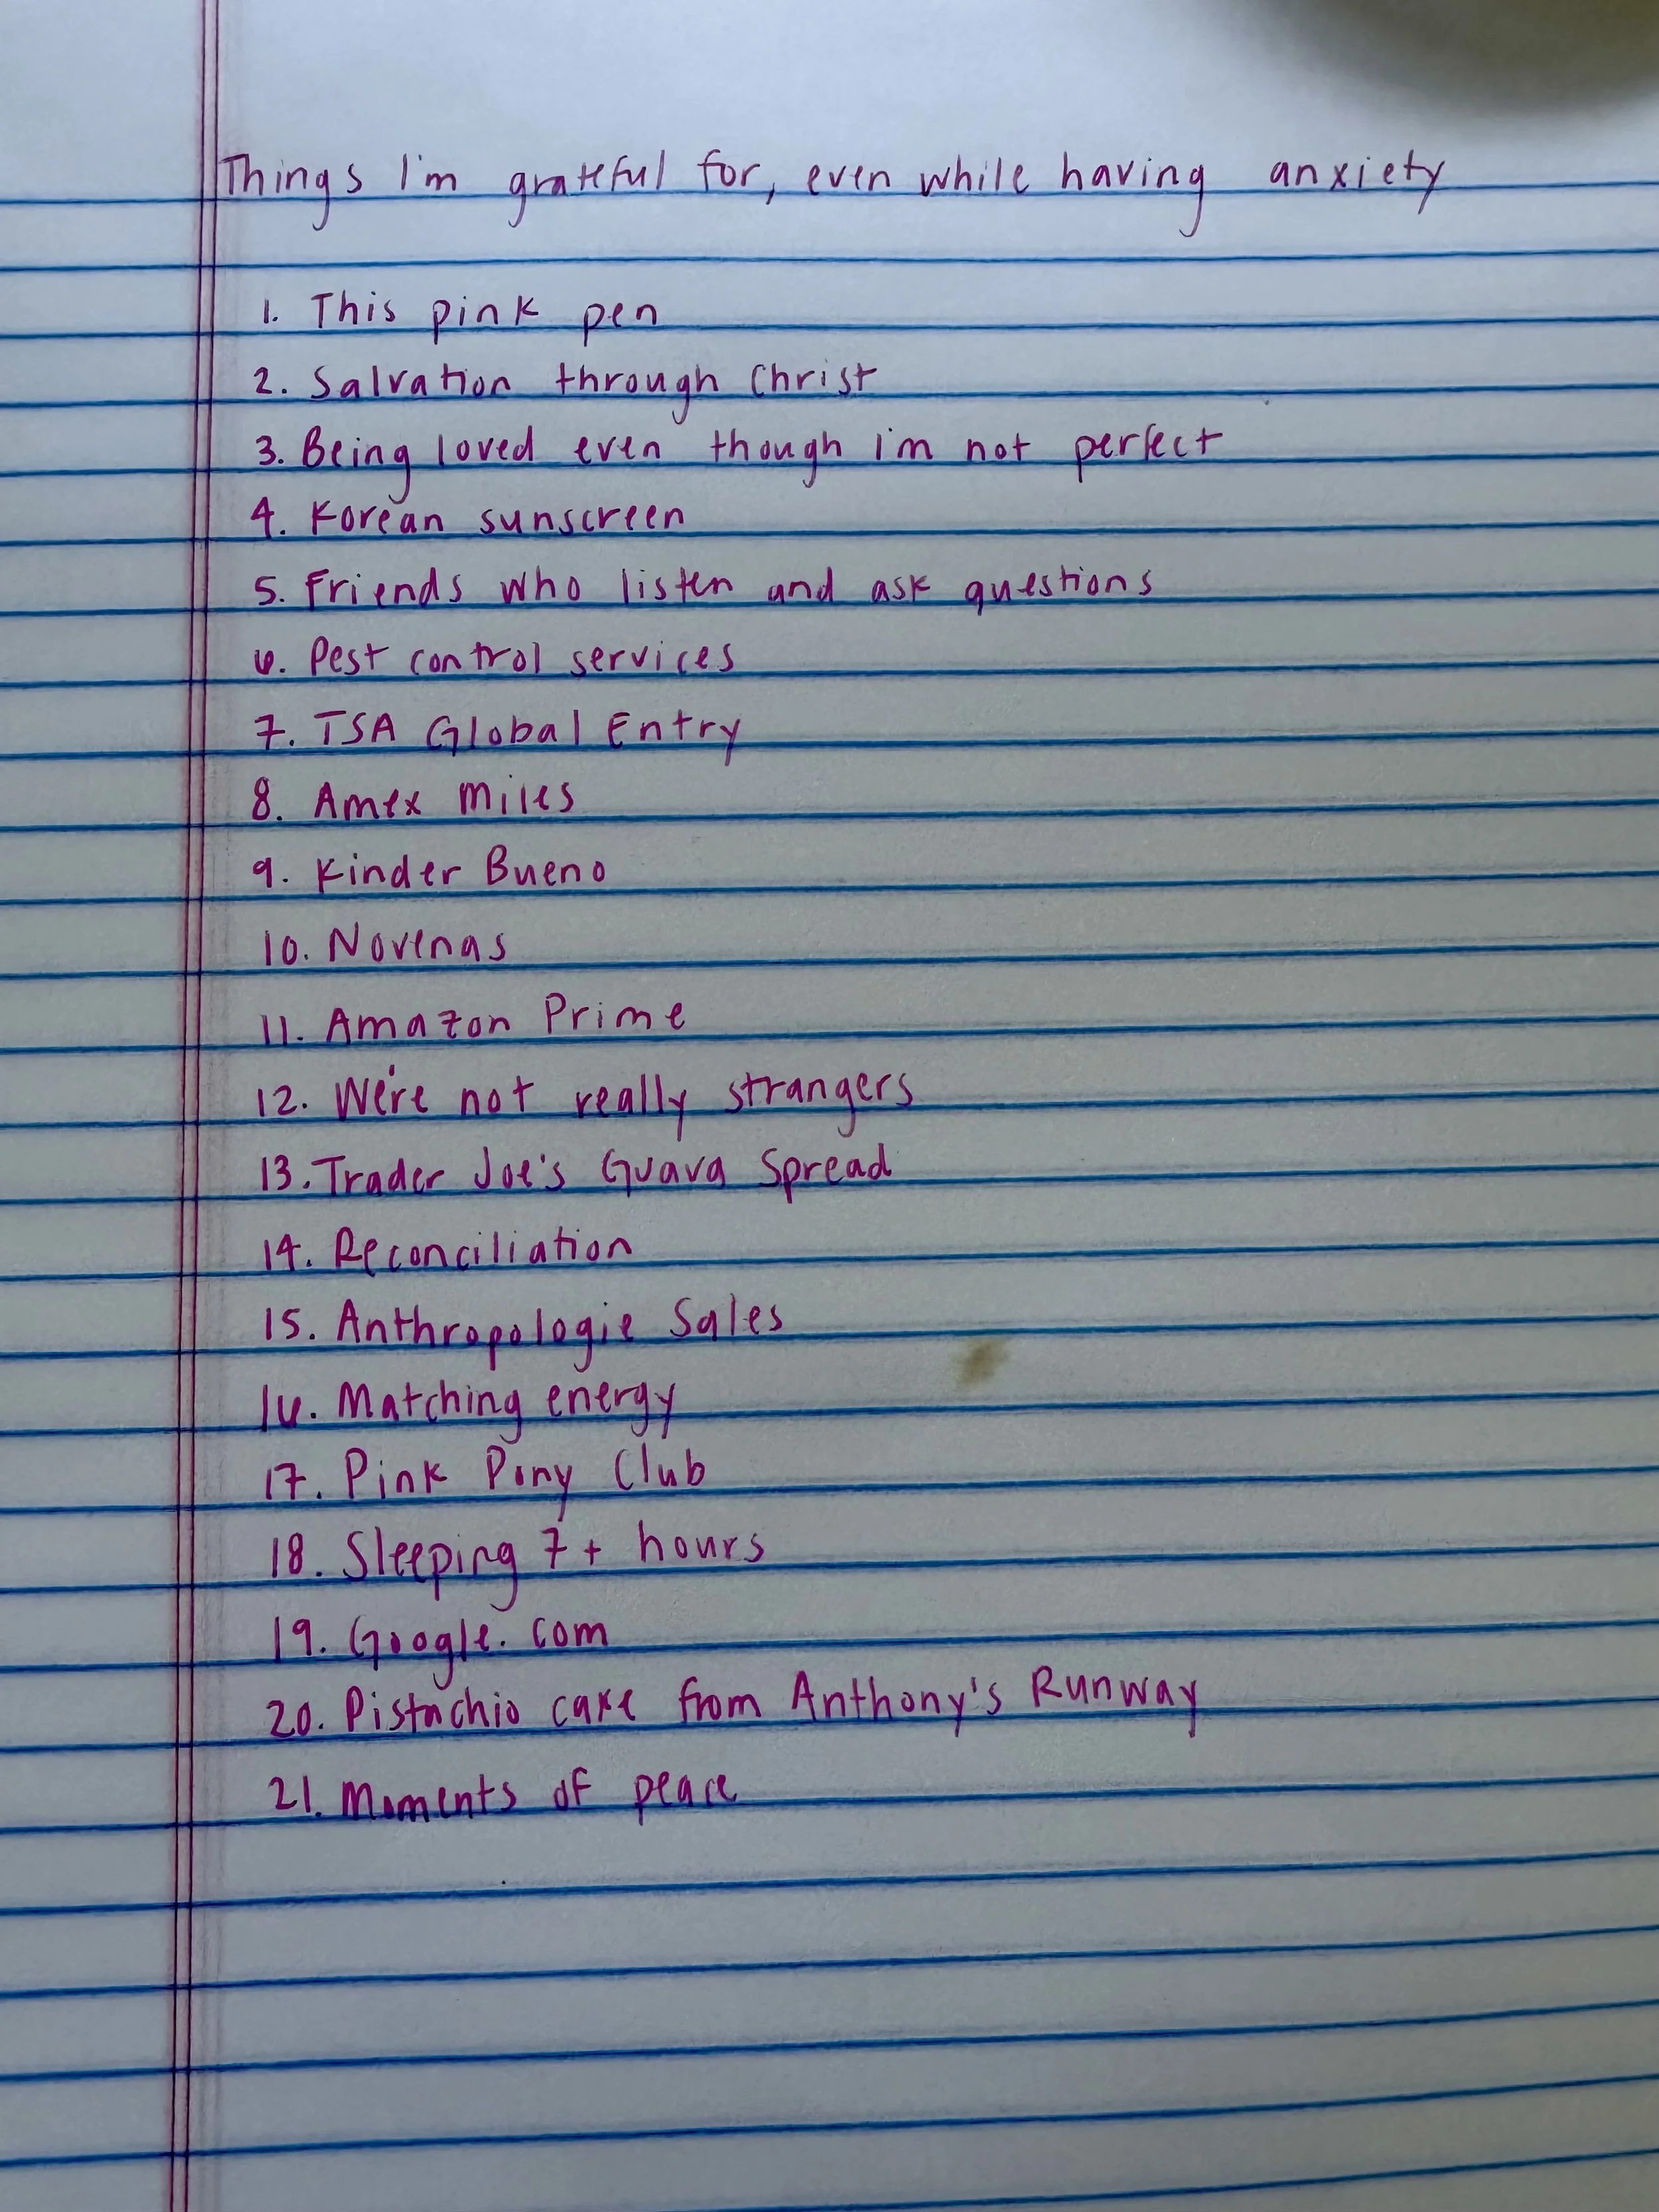 Things I'm grateful for, even while having anxiety
1. This pink pen
2. Salvation through Christ
3. Being loved even though I'm not perfect
4. Korean sunscreen
5. Friends who listen and ask questions
6. Pest control services
7. TSA Global Entry
8. Amex Miles
9. Kinder Bueno
10. Novenas
11. Amazon Prime
12. We're not really strangers
13. Trader Joe's Guava Spread
14. Reconciliation
15. Anthropologie Sales
16. Matching energy
17. Pink Pony Club
18. Sleeping 7+ hours
19. Google.com
20. Pistachio cake from Anthony's Runway
21. Moments of peace